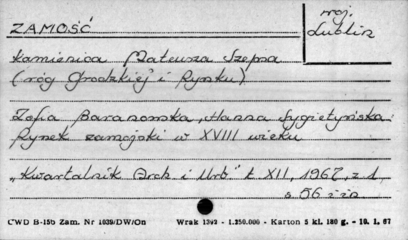 ZAMOŚĆ
woj.
Lublin
Kamienica Mateusza Szepna
(róg Grodzkiej i Rynku)
Zofia Baranowska, Hanna Sygietyńska:
Rynek zamojski w XVIII wieku
"Kwartalnik Arch. i Urb." t. XII, 1967, z. 1
s. 56 i in
CWD B-15b Zam. Nr 1039/DW/On Wrak 1392 - 1.250.000 - Karton 5 kl. 180 g. - 10. 1. 67